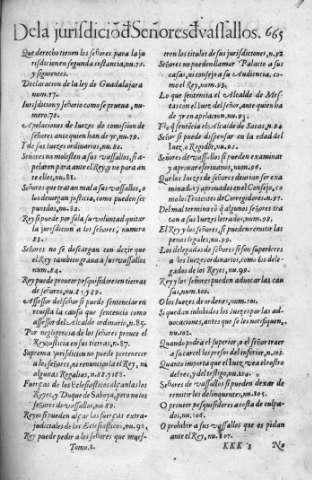 De la jurisdiciõ d̃ Señores d̃ vassallos. 665
Que derecho tienen los señores para la ju
risdicion en segunda instancia, nu.76.
y siguientes.
Declaracion de la ley de Guadalajara
num.77.
Iurisdicion y señorio como se prueua, nu-
mero.78.
Apelaciones de juezes de comission de
señores ante quien han de yr, nu.79.
Y de sus juezes ordinarios, nu.80.
Señores no molesten a sus vassallos, si a-
pelaren para ante el Rey, y no para an
te ellos, nu.81.
Señores que tratan mal a sus vassallos, o
les deniegan justicia, como pueden ser
punidos, nu.82.
Rey si puede por sola su voluntad quitar
la jurisdicion a los señores, numero
83.
Señores no se descargan con dezir que
el Rey tambien grava a sus vassallos
num.84.
Rey puede proueer pesquisidores en tierras
de señores, nu.85.
Assessor del señor si puede sentenciar en
reuista la causa que sentenciò como
assessor del Alcalde ordinario, n.86.
Por negligencia de los señores prouee el
Rey justicia en sus tierras, n.87.
Suprema jurisdicion no puede pertenecer
a los señores, ni enmanciparla el Rey, ni
algunas Regalias, n.88.
Fuerças de los Eclesiasticos alçanlas los
Reyes, y Duque de Saboya, pero no los
señores de vassallos, nu.89.
Reyes si pueden alçar las fuerças extra-
judiciales de los Eclesiasticos, nu.91.
Rey puede pedir a los señores que mues-
Tomo.2.
tren los titulos de sus jurisdiciones, n.92
Señores no pueden llamar Palacio a sus
casas, ni consejo a su Audiencia, co-
mo el Rey, num.93.
Lo que sentencia el Alcalde de Mes-
ta con el juez del señor, ante quien ha
de yr en apelacion, nu.93.
Y la sentencia del Alcalde de Sacas, n.94
Señor si puede dispensar en la edad del
juez, o Regidor, nu.95.
Señores de vassallos si pueden examinar
y aprouar escriuanos, num.96.
Que los juezes de Señores deurian ser exa
minados y aprouados en el Consejo, co
mo los Tenientes de Corregidores, n.97.
Del mal termino cõ q̃ algunos señores tra
tan a sus juezes letrados, num.98.
El Rey y los señores, si pueden remitir las
penas legales, nu.99.
Los delegados de los Señores si son superiores
a los juezes ordinarios, como los dele-
gados de los Reyes, nu.99.
Rey y los señores pueden aduocar las cau
sas, num.100.
O los juezes de ordenes, num.101.
Si pueden inhibidos los juezes por las ad-
uocaciones, antes que se les notifiquen,
nu.102.
Quando podrà el superior, o el señor traer
a sacar los presos del inferior, nu.103.
Quanto importa que el juez vea el rostro
del reo, y del testigo, nu.104.
Señores de vassallos si pueden dexar de
remitir los delinquentes, nu.105.
O proueer pesquisidores a costa de culpa-
dos, num.106.
O prohibir a sus vassallos que os pidan
ante el Rey, nu.107.
KKK 3 No